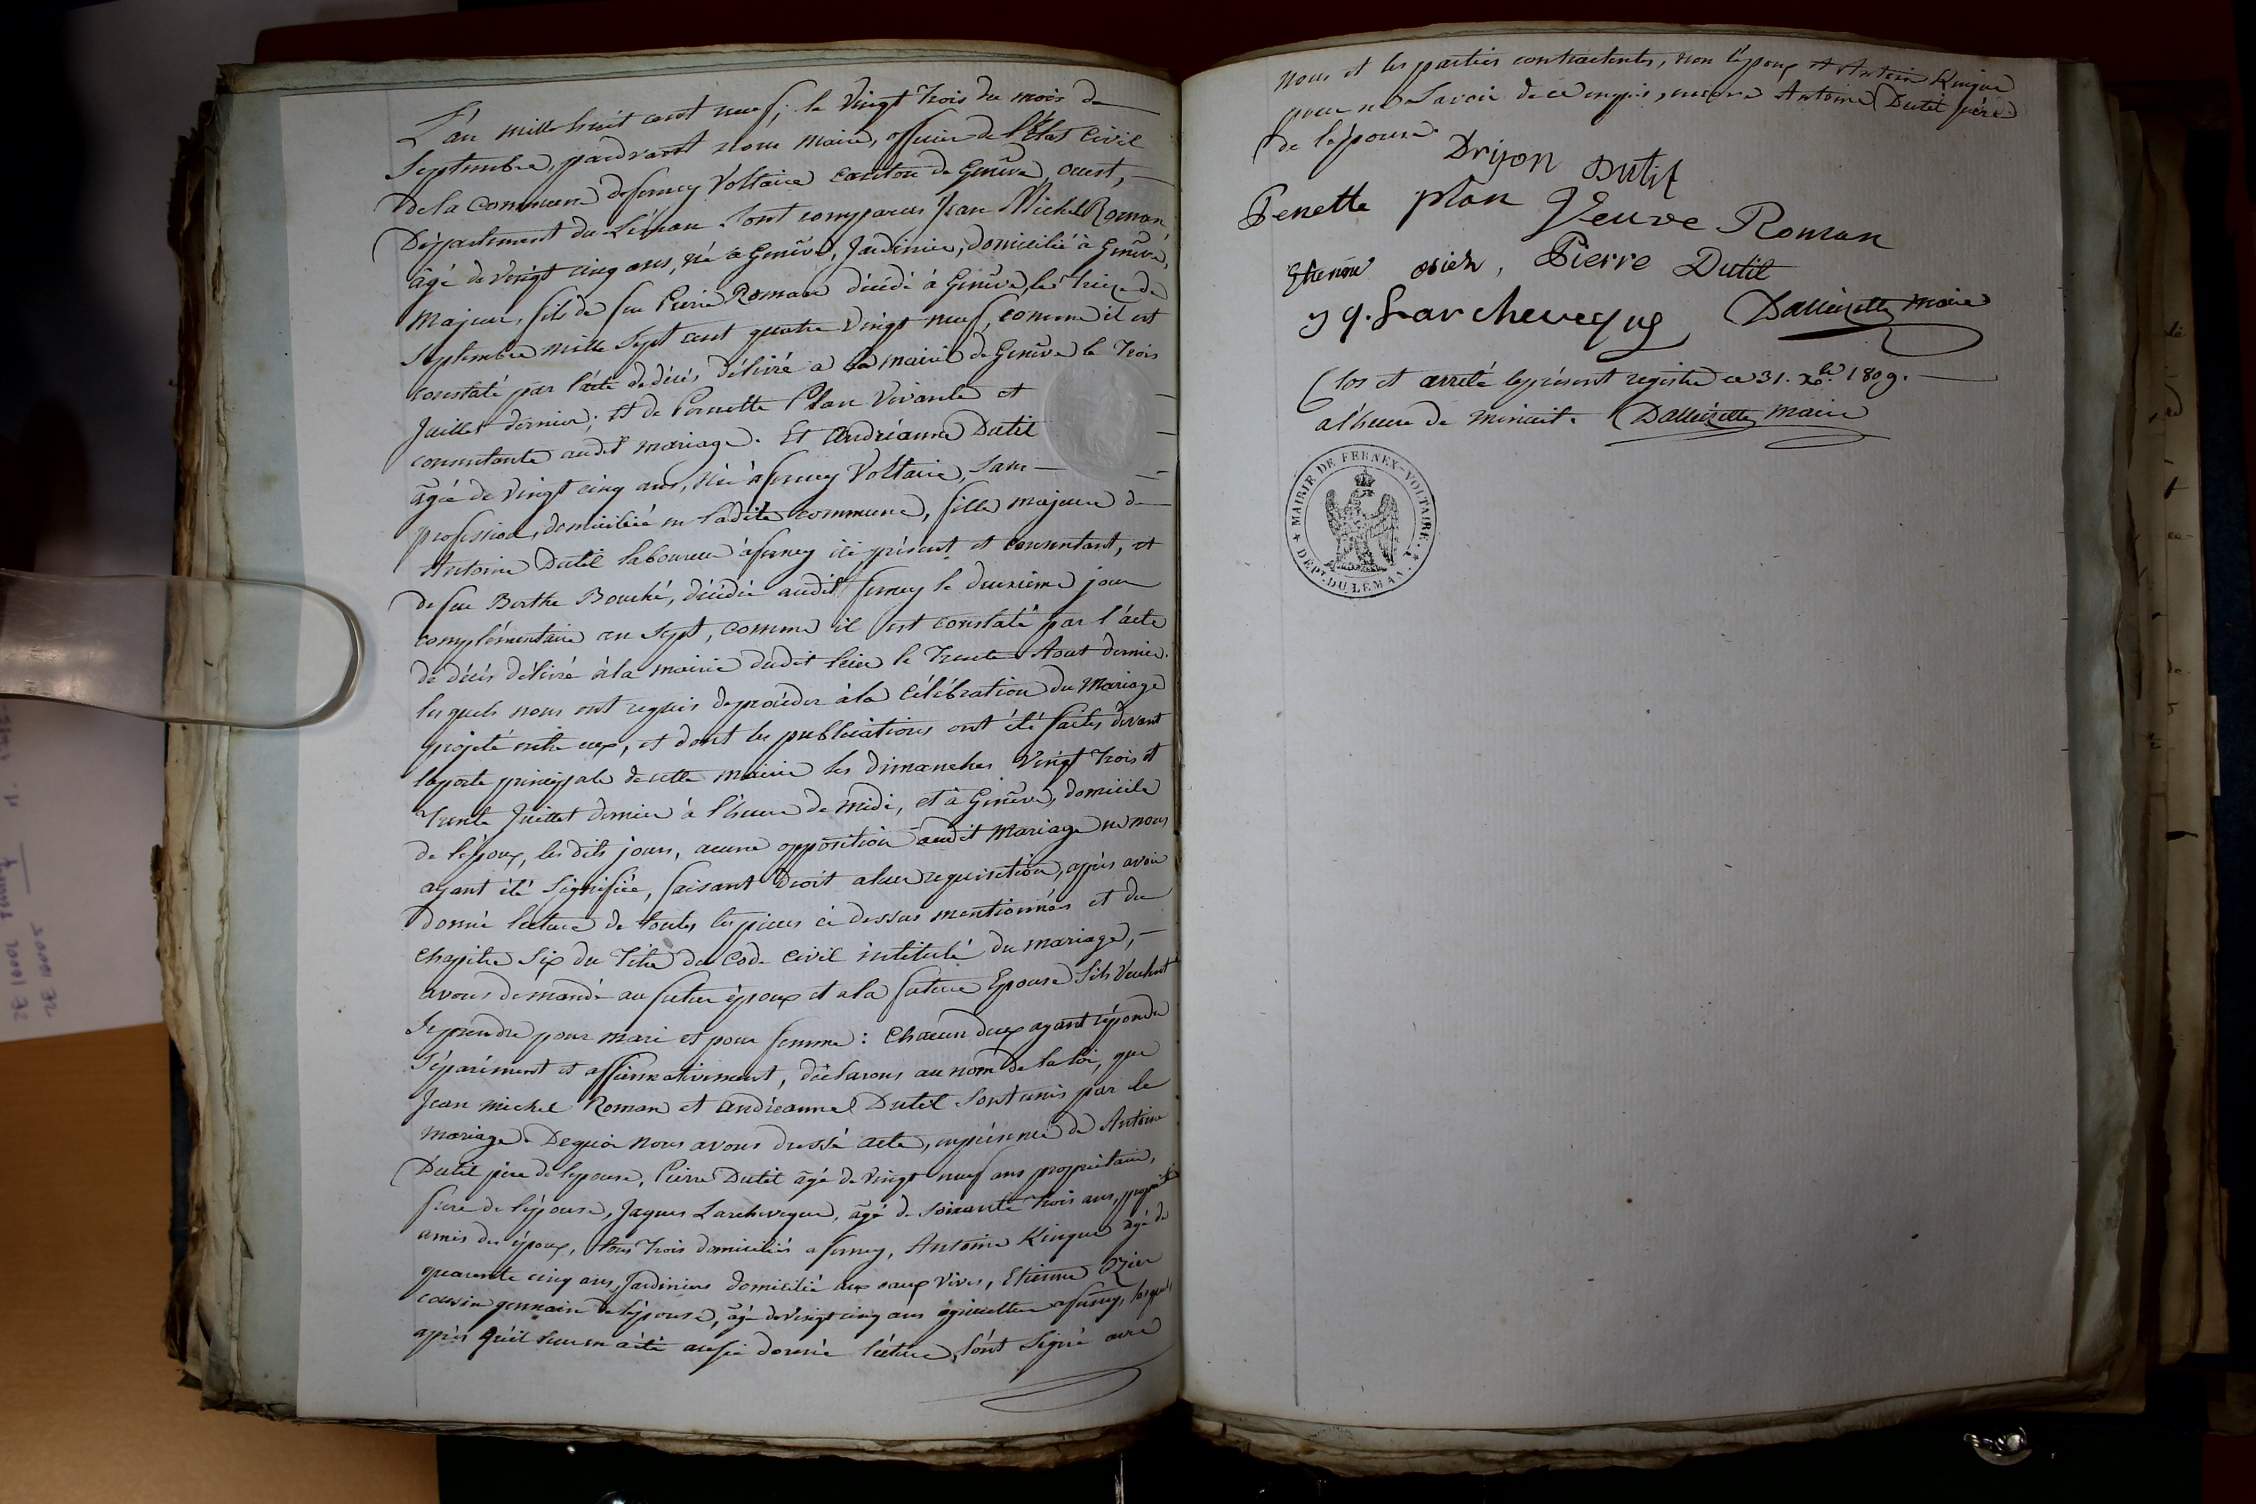 L'an mille huit cent neuf, le vingt trois du mois de
Septembre, pardevant nous maire, officier de l'Etat Civil
de la commune de ferney Voltaire canton de Genêve, ouest,
Département du Léman. Sont comparus Jean Michel Roman
âgé de vingt cinq ans, né à Genêve, Jardinier, domicilié à Genêve,
Majeur, fils de feu Pierre Roman décédé à Genêve, le treize de
Septembre mille sept cent quatre vingt neuf, comme il est
constaté par l'acte de décès délivré à la mairie de Genêve le trois
Juillet dernier; et de Pernette Plan vivante et
consentante audit mariage. Et Andréanne Dutil
âgée de vingt cinq ans, née à ferney Voltaire, sans
profession, domiciliée en ladite commune, fille majeure de
Antoine Dutil laboureur à ferney ici présent et consentant, et
de feu Berthe Bouché, décédée audit ferney le deuxième jour
complémentaire an sept, comme il est constaté par l'acte
de décès délivré à la mairie dudit lieu le trente Aout dernier.
lesquels nous ont requis de procéder à la célébration du Mariage
projeté entre eux, et dont les publications ont été faites devant
la porte principale de cette mairie les dimanches vingt trois et
trente Juillet dernier à l'heure de midi, et à Genêve, domicile
de l'époux, les dits jours, aucune opposition audit Mariage ne nous
ayant été signifiée, faisant droit a leur requisition, après avoir
donné lecture de toutes les pieces ci dessus mentionnées et du
chapitre Six du titre du Code civil intitulé du mariage,
avons demandé au futur époux et a la future Epouse s'ils veulent
se prendre pour mari et pour femme: chacun deux ayant répondu
séparément et affirmativement, déclarons au nom de la loi, que
Jean michel Roman et andréanne Dutil sont unis par le
mariage. De quoi nous avons dressé acte, en présence de Antoine
Dutil père de lepouse, Pierre Dutil âgé de vingt neuf ans propriétaire,
frere de l'épouse, Jaques Larcheveque, âgé de soixante trois ans,
amis des époux, tous trois domiciliés a ferney, Antoine Kinque âgé de
quarante cinq ans, Jardinier domicilié aux eaux vives, Etienne Ozier
cousin germain de l'épouse, âgé de vingt cinq ans à ferney, lesquels
après qu'il leur en a été aussi donné lecture, l'ont signé avec
nous et les parties contractantes, non l'époux et Antoine Kinque
pour ne savoir de ce enquis, encore Antoine Dutil père
de l'épouse.
Drijon Dutil
Penette plan Veuve Roman
Etienne osier, Pierre Dutil
Larcheveque maire
Clos et arreté le présent registre ce 31. Xbre 1809.
a l'heure de minuit. maire
MAIRIE DE FERNEX-VOLTAIRE.
DÉPT. DU LÉMAN.